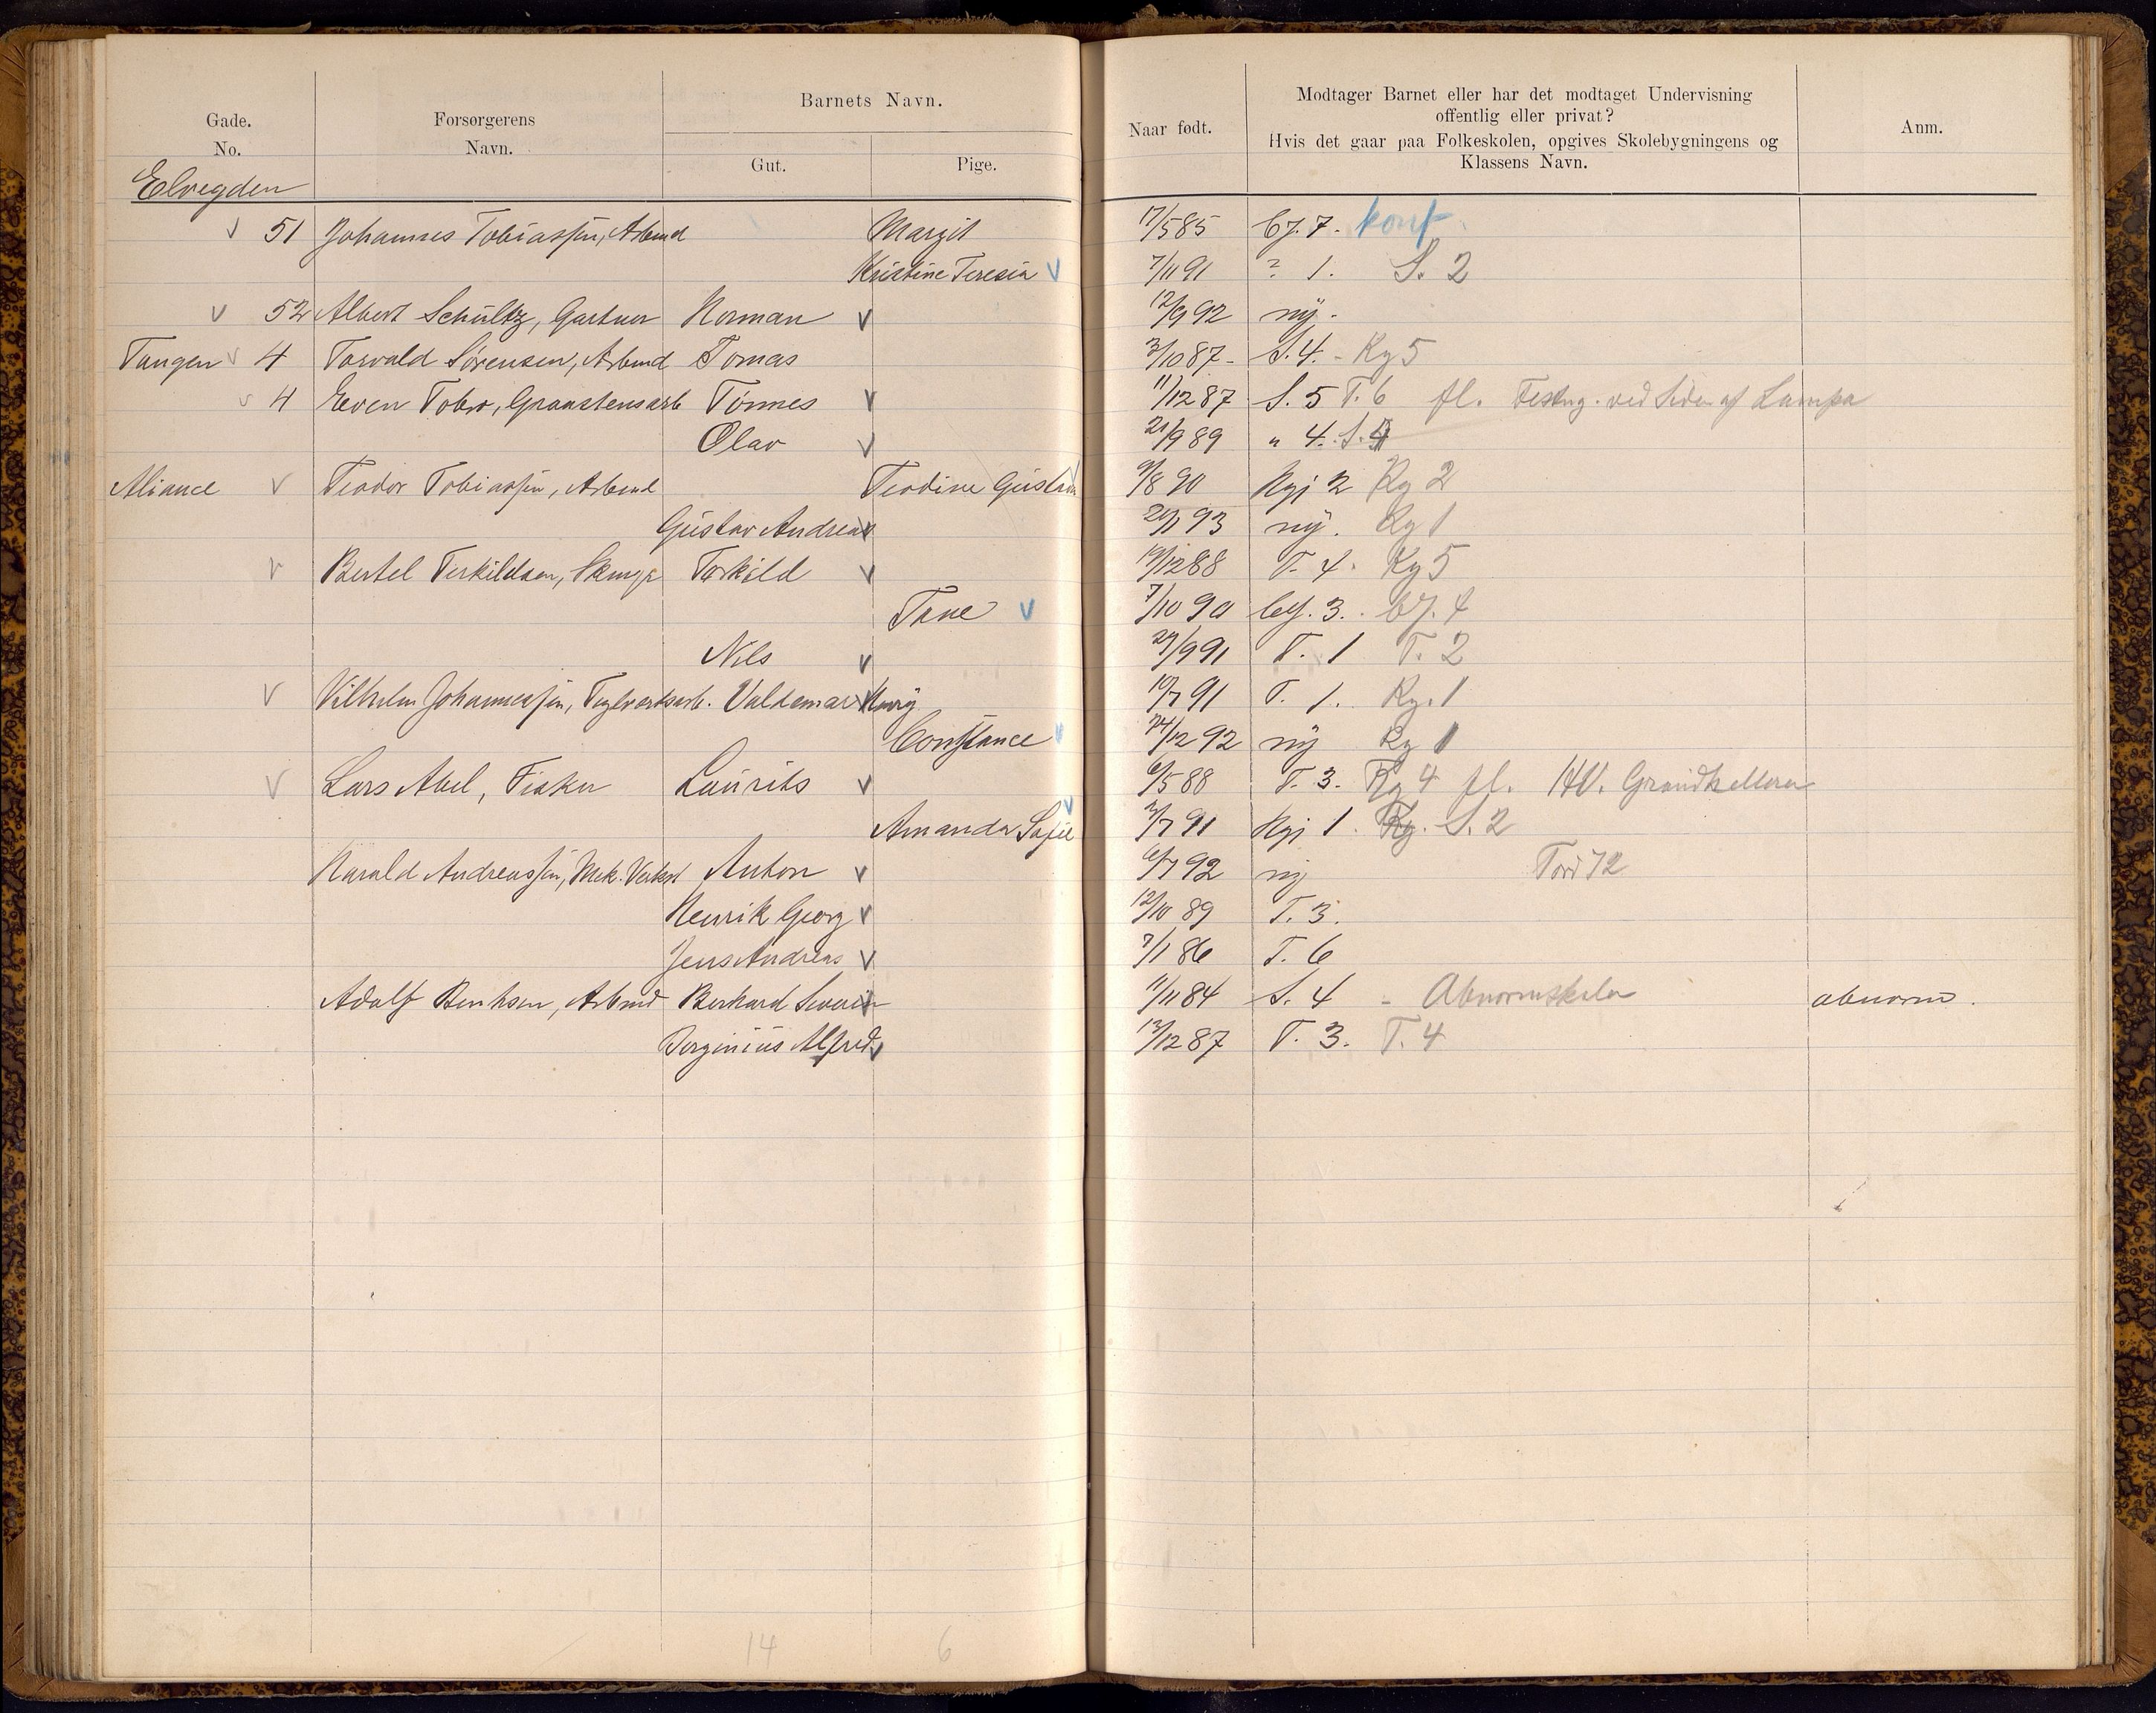 Gade.
No.
Forsørgerens
Navn.
Barnets Navn.
Gut.
Pige.
Naar født.
Modtager Barnet eller har det modtaget Undervisning
offentlig eller privat?
Hvis det gaar paa Folkeskolen, opgives Skolebygningens og
Klassens Navn.
Anm.
Elvegden
51 Johannes Tobiassen, Arbmd Margit 17/5 85 7. konf.
Kristine Teresia 7/11 91 ? 1. S. 2
52 Albert Schultz, Gartner Herman 12/9 92 ny.
Tangen 4 Torvald Sørensen, Arbmd Tomas 3/10 87 S. 4. - Kg 5
4 Even Tobro, Graastensarb Tönnes 11/12 87 S. 5 T. 6 fl. Festng. ved Siden af Lumpa
Olav 21/9 89 " 4. S. 4
Aliance Teodor Tobiassen, Arbmd Teodine 9/8 90 Kgj 2 Kg 2
Gustav Andreas 93 ny. Kg 1
Bertel Terkildsen, Torkild 19/12 88 T. 4. Kg 5
Tane 7/10 90 3. 4
Nils 29/9 91 T. 1 T. 2
Vilhelm Johannessen, Teglverksarb. Valdemar 19/7 91 T. 1. Kg. 1
Constance 24/12 92 ny Kg 1
Lars Abel, Fisker Laurits 6/5 88 T. 3. Kg 4 fl. HV. Grandkelleren
Amanda Sofie 3/7 91 Kgj 1. Kg. S. 2
Harald Andreassen, Mek. Verkst Anton 6/7 92 ny 72
Henrik Georg 12/10 89 T. 3.
Jens Andreas 7/1 86 T. 6
Adolf Benhsen, Arbmd Berhard Severin 11/11 84 S. 4 - Abnormskolen abnorm.
Torginius Alfred 13/12 87 T. 3. T. 4
14 6